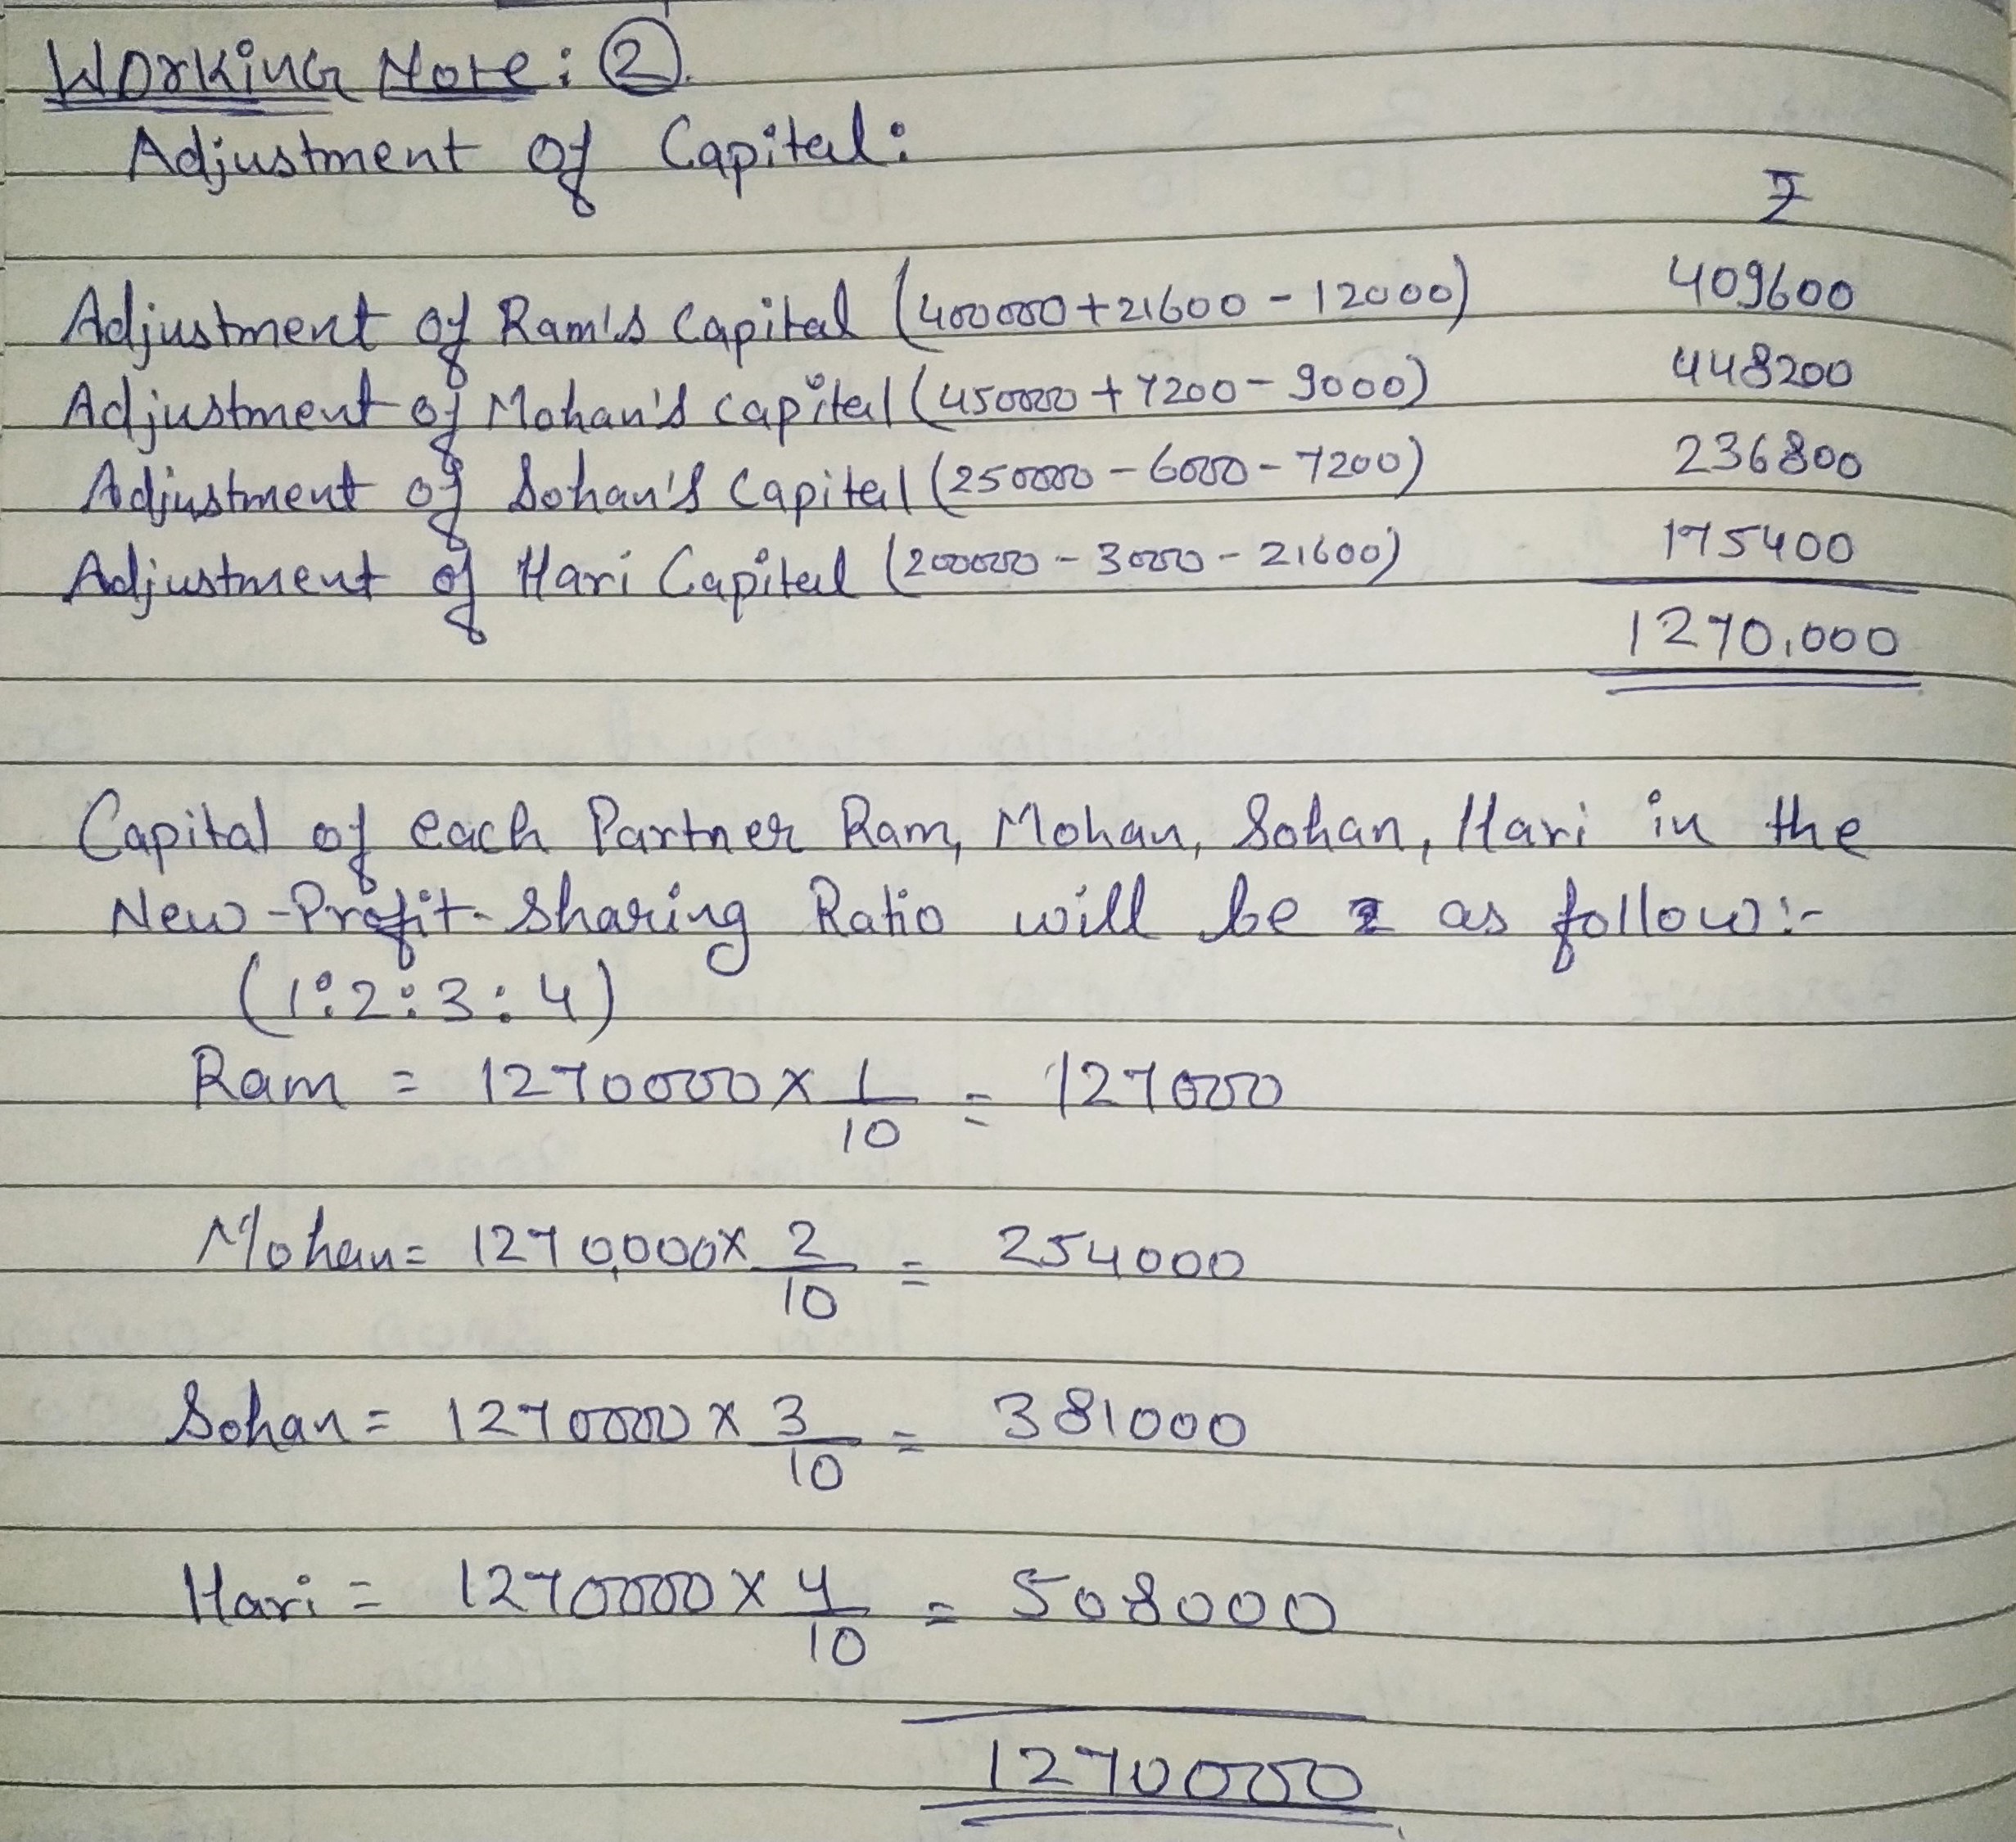 Working Note: ②
Adjustment of Capital:
₹
Adjustment of Ram's Capital (400000+21600-12000) 409600
Adjustment of Mohan's Capital (450000+7200-9000) 448200
Adjustment of Sohan's Capital (250000-6000-7200) 236800
Adjustment of Hari Capital (200000-3000-21600) 175400
1270,000
Capital of each Partner Ram, Mohan, Sohan, Hari in the
New-Profit-Sharing Ratio will be as follow:-
(1:2:3:4)
Ram = 1270000 x 1/10 = 127000
Mohan = 1270,000 x 2/10 = 254000
Sohan = 1270000 x 3/10 = 381000
Hari = 1270000 x 4/10 = 508000
1270000